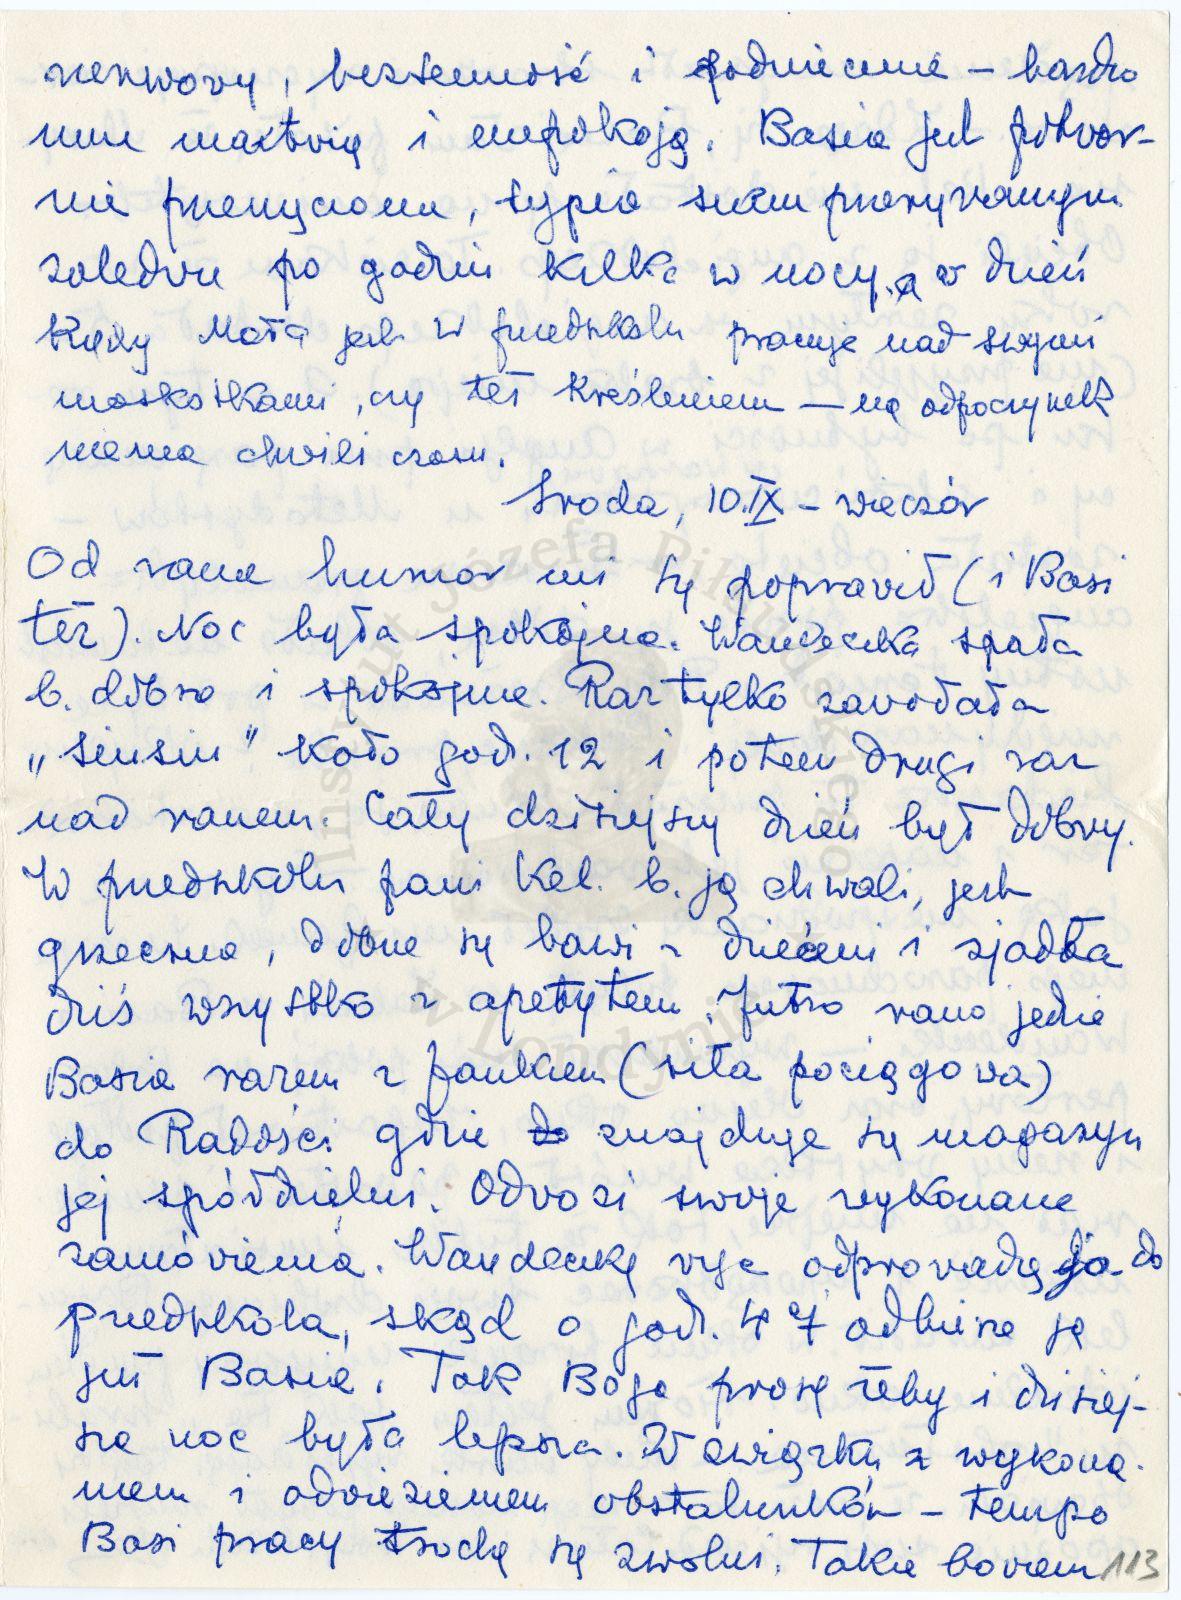 nerwowy, bezsenność i podniecenie – bardzo
mnie martwią i niepokoją. Basia jest potwor-
nie przemęczona, sypia snem przerywanym
zaledwie po godzin kilka w nocy, a w dzień
kiedy Mała jest w przedszkolu pracuje nad swymi
maskotkami, czy też kreśleniem – na odpoczynek
niema chwili czasu.
Środa, 10.IX – wieczór
Od rana humor mi się poprawił (i Basi
też). Noc była spokojna. Wandeczka spała
b. dobrze i spokojnie. Raz tylko zawołała
„siusiu" koło god. 12 i potem drugi raz
nad ranem. Cały dzisiejszy dzień był dobry.
W przedszkolu pani Kel. b. ją chwali, jest
grzeczna, dobrze się bawi z dziećmi i zjadła
dziś wszystko z apetytem. Jutro rano jedzie
Basia razem z Jankiem (siła pociągowa)
do Radości gdzie do znajduje się magazyn
jej spółdzielni. Odwozi swoje wykonane
zamówienia. Wandeczkę więc odprowadzę ja do
przedszkola, skąd o god. 4 odbierze ją
już Basia. Tak Boga proszę żeby i dzisiej-
sza noc była lepsza. W związku z wykona-
niem i odwiezieniem obstalunków – tempo
Basi pracy trochę się zwolni. Takie bowiem
113
Instytut Józefa Piłsudskiego
w Londynie